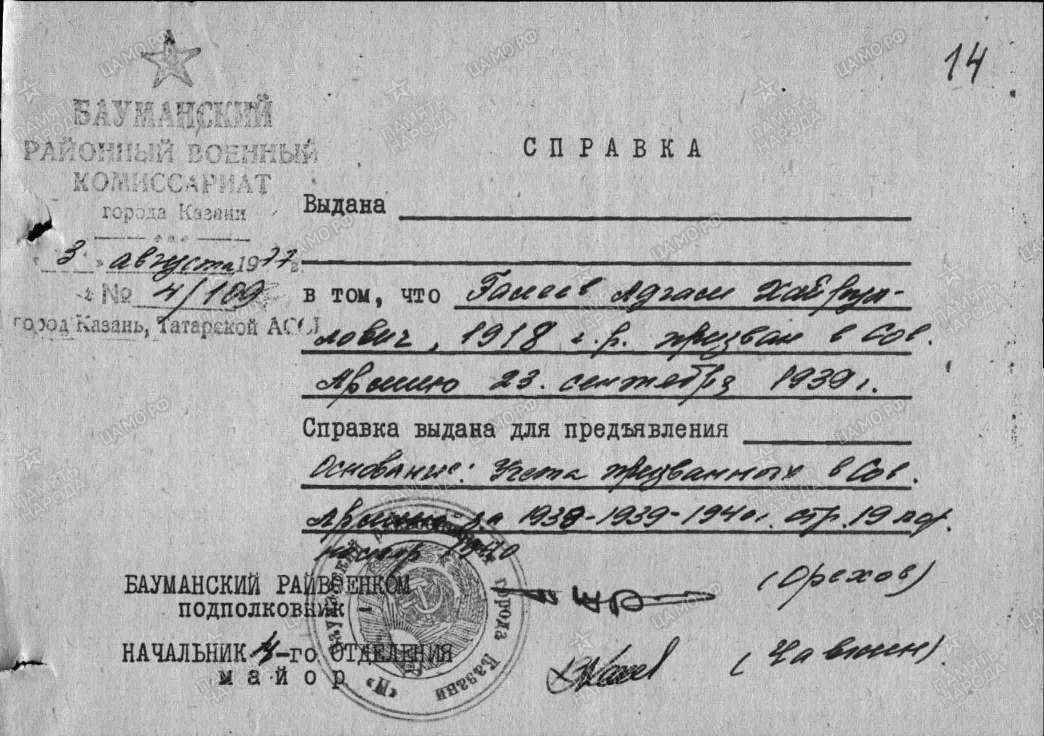 14
БАУМАНСКИЙ
РАЙОННЫЙ ВОЕННЫЙ
КОМИССАРИАТ
города Казани
„3“ августа 1977 г.
№ 4/109
город Казань, Татарской АССР
СПРАВКА
Выдана
в том, что Галеев Адгам Хайрул-
лович, 1918 г.р. призван в Сов.
Армию 23. сентября 1939 г.
Справка выдана для предъявления
Основание: Учета призванных в Сов.
Армию за 1938-1939-1940г. стр. 19 пор.
номер
БАУМАНСКИЙ РАЙВОЕНКОМ
ПОДПОЛКОВНИК
(Орехов)
НАЧАЛЬНИК 4-го ОТДЕЛЕНИЯ
майор
города Казани
ПАМЯТЬ НАРОДА
ЦАМО.РФ